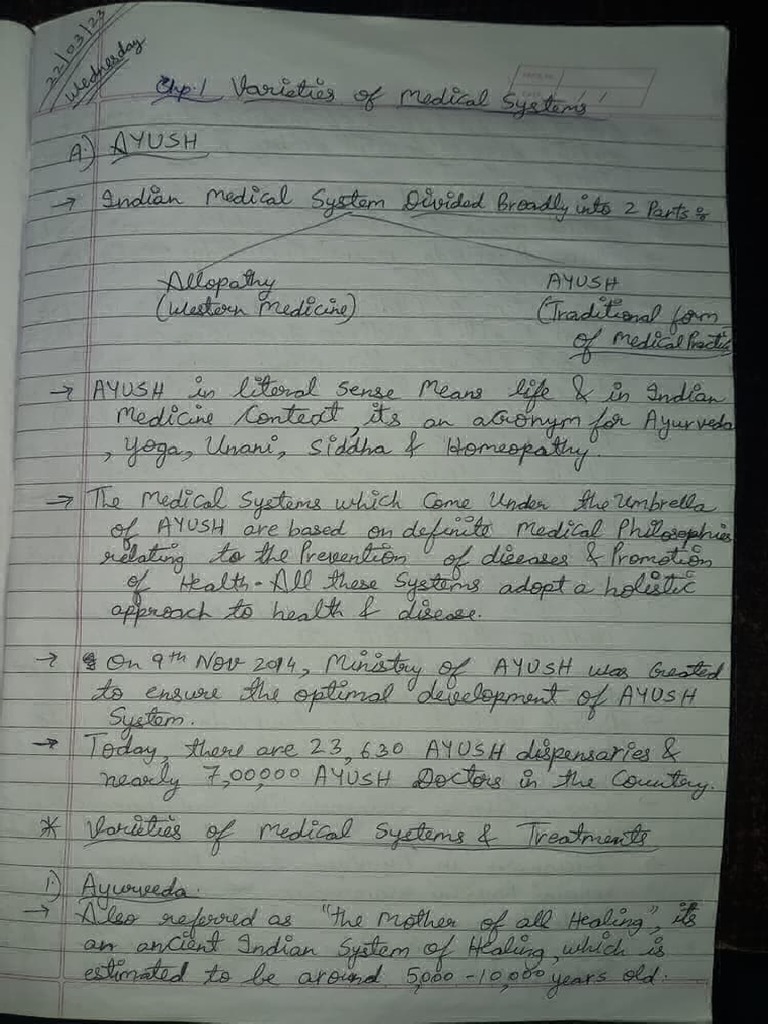 22/03/23
Wednesday
Chp.1 Varieties of Medical Systems
A.) AYUSH
→ Indian Medical System Divided Broadly into 2 Parts :
Allopathy AYUSH
(Western Medicine) (Traditional form
of Medical Practice
→ AYUSH in literal sense Means life & in Indian
Medicine Context, its an acronym for Ayurveda
, Yoga, Unani, Siddha & Homeopathy.
→ The Medical Systems which Come Under the Umbrella
of AYUSH are based on definite Medical Philosophies
relating to the Prevention of diseases & Promotion
of Health - All these Systems adopt a holistic
approach to health & disease.
→ On 9th Nov 2014, Ministry of AYUSH was Created
to ensure the optimal development of AYUSH
System.
→ Today, there are 23,630 AYUSH dispensaries &
nearly 7,00,000 AYUSH Doctors in the Country.
* Varieties of Medical Systems & Treatments
1.) Ayurveda.
→ Also referred as "the Mother of all Healing", its
an ancient Indian System of Healing, which is
estimated to be around 5,000 - 10,000 years old.